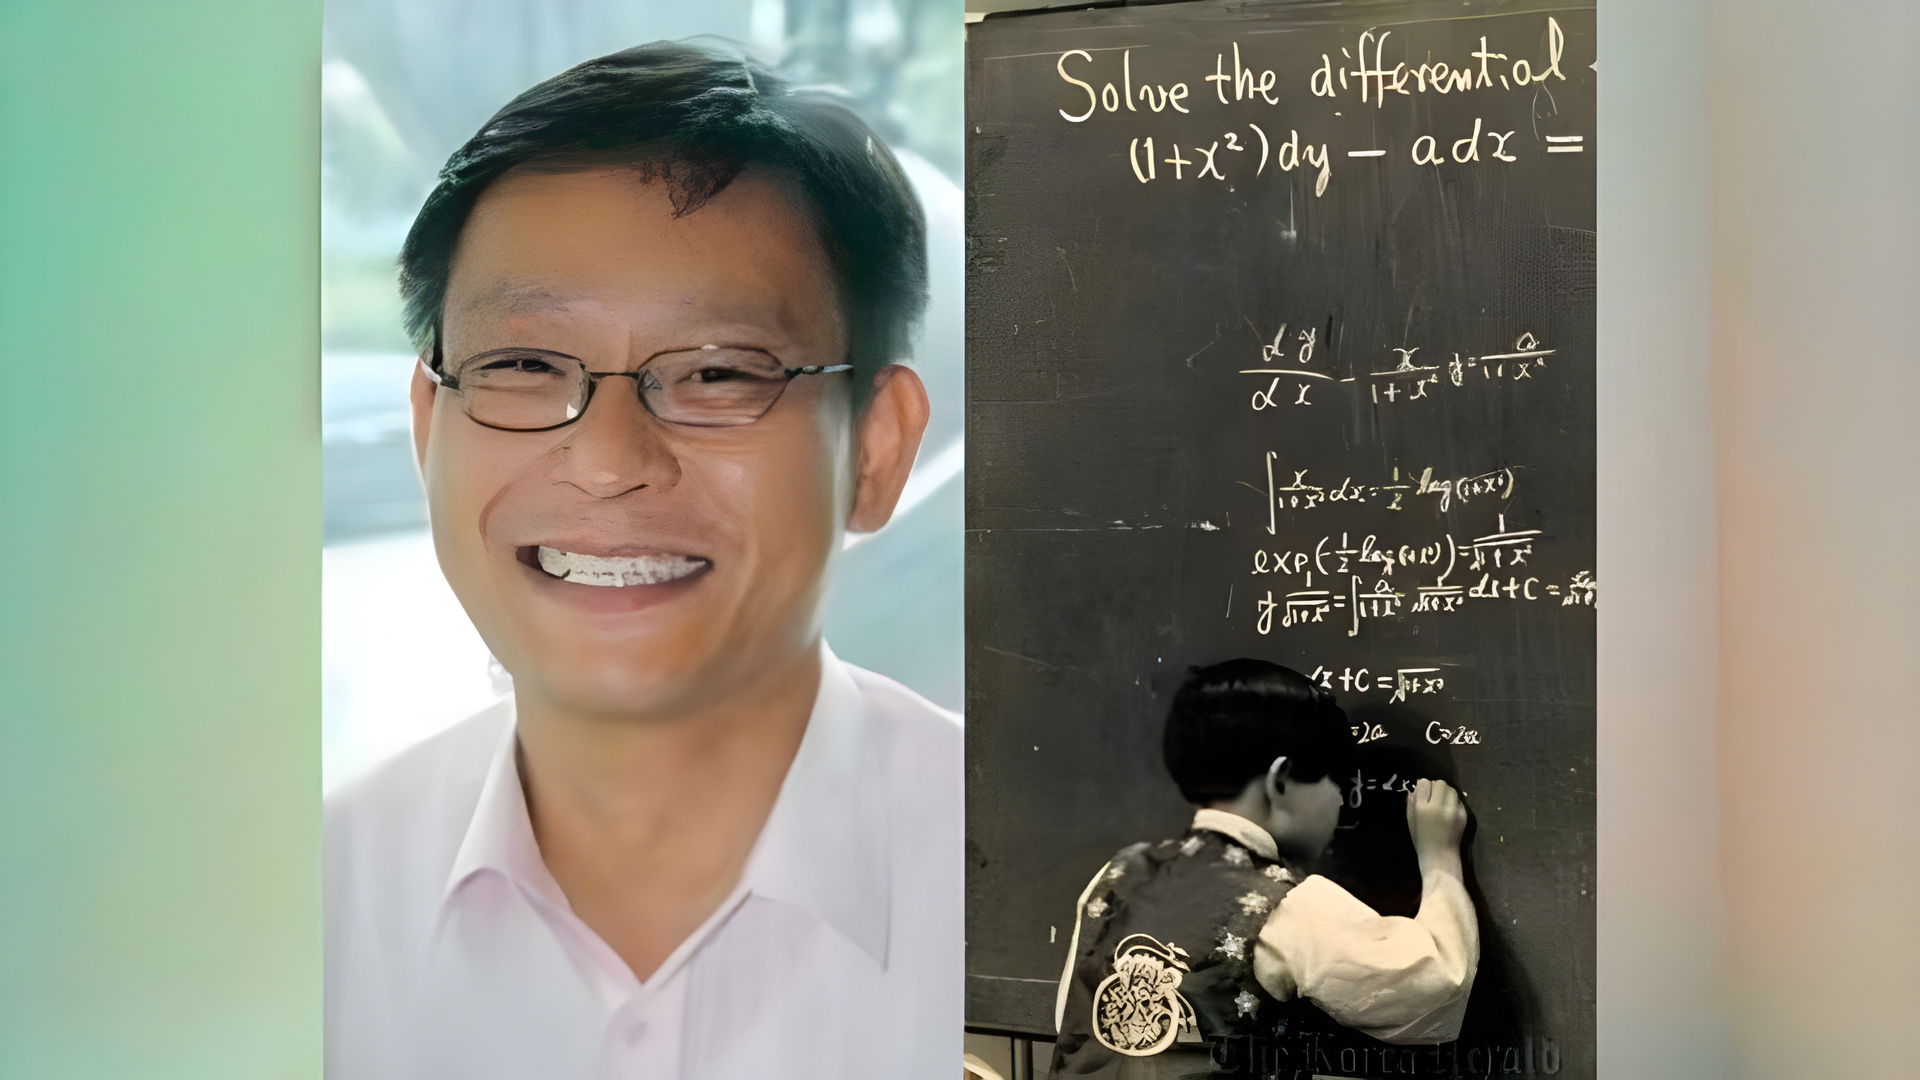 Solve the differential
(1+x²)dy - adx =
dy/dx - x/(1+x²) y = a/(1+x²)
∫ x/(1+x²) dx = 1/2 log(1+x²)
exp(-1/2 log(1+x²)) = 1/√(1+x²)
y 1/√(1+x²) = ∫ a/(1+x²) 1/√(1+x²) dx + C =
x + C = √(1+x²)
=2a C=2a
y = ax
The Korea Herald